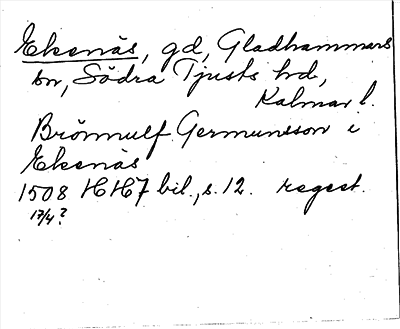 Ekenäs, gd, Gladhammars
sn, Södra Tjusts hd,
Kalmar l.
Brömulf Germunsson i
Ekenäs
1508 HH7 bil., s. 12. regest.
17/4?